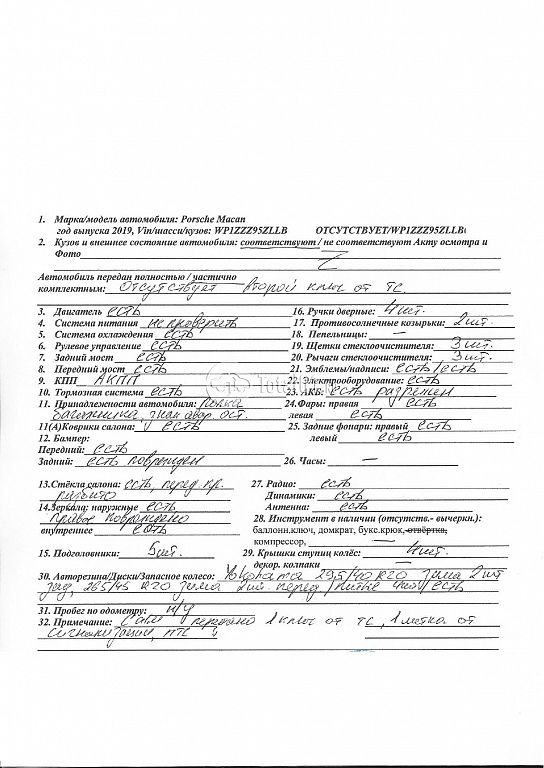 1. Марка/модель автомобиля: Porsche Macan
год выпуска 2019, Vin/шасси/кузов: WP1ZZZ95ZLLB ОТСУТСТВУЕТ/WP1ZZZ95ZLLB
2. Кузов и внешнее состояние автомобиля: соответствуют / не соответствуют Акту осмотра и
Фото
Автомобиль передан полностью / частично
комплектным: Отсутствует второй ключ от ТС.
3. Двигатель есть 16. Ручки дверные: 4 шт.
4. Система питания не проверить 17. Противосолнечные козырьки: 2 шт.
5. Система охлаждения есть 18. Пепельницы: —
6. Рулевое управление есть 19. Щетки стеклоочистителя: 3 шт.
7. Задний мост есть 20. Рычаги стеклоочистителя: 3 шт.
8. Передний мост есть 21. Эмблемы/надписи: есть/есть
9. КПП АКПП 22. Электрооборудование: есть
10. Тормозная система есть 23. АКБ: есть разряжен
11. Принадлежности автомобиля: полка 24.Фары: правая есть
багажника, знак авар. ост. левая есть
11(А)Коврики салона: есть 25. Задние фонари: правый есть
12. Бампер: левый есть
Передний: есть
Задний: есть поврежден 26. Часы: —
13.Стёкла салона: есть, перед. пр. 27. Радио: есть
разбито Динамики: есть
14.Зеркала: наружные есть Антенна: есть
правое повреждено 28. Инструмент в наличии (отсутств.- вычеркн.):
внутреннее есть баллонн.ключ, домкрат, букс.крюк, отвёртка,
компрессор,
15. Подголовники: 5 шт. 29. Крышки ступиц колёс: 4 шт.
декор. колпаки —
30. Авторезина/Диски/Запасное колесо: Yokohama 295/40 R20 зима 2 шт
зад, 265/45 R20 зима 2 шт. перед / литые / есть
31. Пробег по одометру: н/у
32. Примечание: передано 1 ключ от ТС, 1 метка от
сигнализации, ПТС